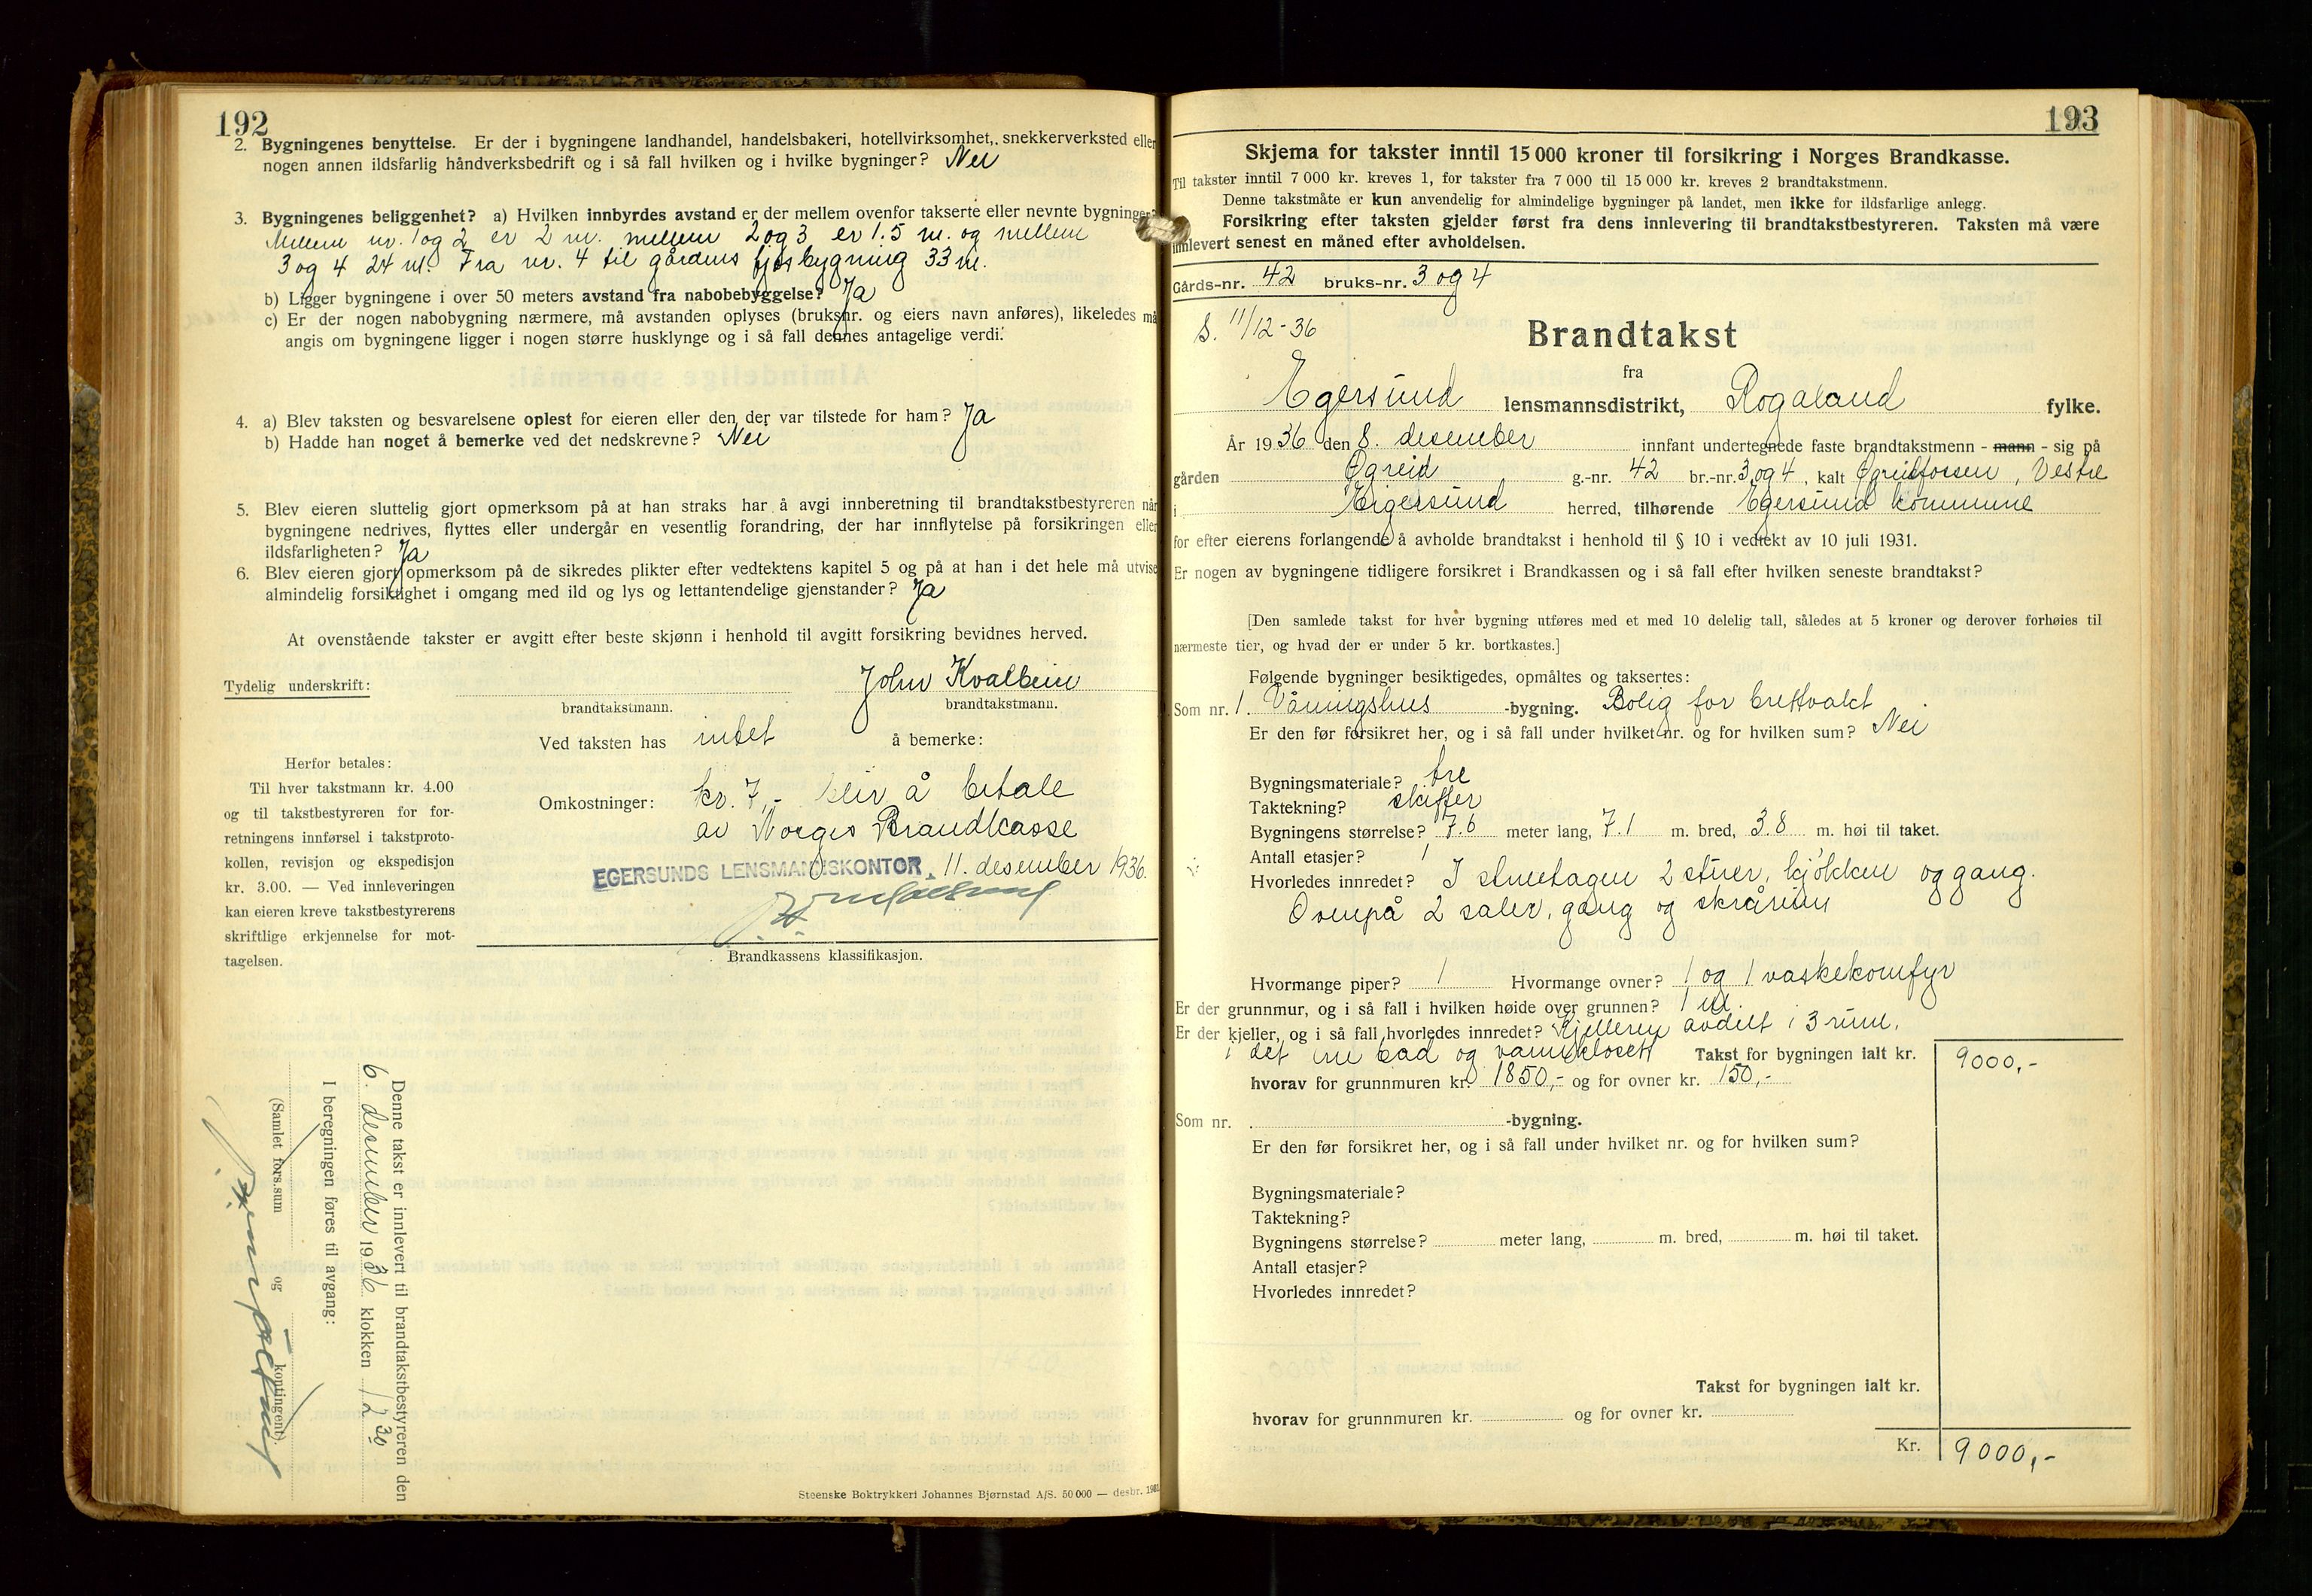 192
2. Bygningenes benyttelse. Er der i bygningene landhandel, handelsbakeri, hotellvirksomhet, snekkerverksted eller
nogen annen ildsfarlig håndverksbedrift og i så fall hvilken og i hvilke bygninger? Nei
3. Bygningenes beliggenhet? a) Hvilken innbyrdes avstand er der mellem ovenfor takserte eller nevnte bygninger?
Mellem nr. 1 og 2 er 2 m. mellem 2 og 3 er 1.5 m. og mellem
3 og 4 24 m. Fra nr. 4 til gårdens fjøsbygning 33 m.
b) Ligger bygningene i over 50 meters avstand fra nabobebyggelse? Ja
c) Er der nogen nabobygning nærmere, må avstanden oplyses (bruksnr. og eiers navn anføres), likeledes må
angis om bygningene ligger i nogen større husklynge og i så fall dennes antagelige verdi.
4. a) Blev taksten og besvarelsene oplest for eieren eller den der var tilstede for ham? Ja
b) Hadde han noget å bemerke ved det nedskrevne? Nei
5. Blev eieren sluttelig gjort opmerksom på at han straks har å avgi innberetning til brandtakstbestyreren når
bygningene nedrives, flyttes eller undergår en vesentlig forandring, der har innflytelse på forsikringen eller
ildsfarligheten? Ja
6. Blev eieren gjort opmerksom på de sikredes plikter efter vedtektens kapitel 5 og på at han i det hele må utvise
almindelig forsiktighet i omgang med ild og lys og lettantendelige gjenstander? Ja
At ovenstående takster er avgitt efter beste skjønn i henhold til avgitt forsikring bevidnes herved.
Tydelig underskrift: John Kvalbein
brandtakstmann. brandtakstmann.
Ved taksten has intet å bemerke:
Herfor betales:
Til hver takstmann kr. 4.00
og til takstbestyreren for for-
retningens innførsel i takstproto-
kollen, revisjon og ekspedisjon
kr. 3.00. — Ved innleveringen
kan eieren kreve takstbestyrerens
skriftlige erkjennelse for mot-
tagelsen.
Omkostninger: kr. 7,- blir å betale
av Norges Brandkasse
EGERSUNDS LENSMANDSKONTOR, 11. desember 1936.
Brandkassens klassifikasjon.
Denne takst er innlevert til brandtakstbestyreren den
6. desember 1936 klokken 12 30
I beregningen føres til avgang:
(Samlet fors.sum og kontingent).
Steenske Boktrykkeri Johannes Bjørnstad A/S. 50 000 — desbr. 1931
193
Skjema for takster inntil 15 000 kroner til forsikring i Norges Brandkasse.
Til takster inntil 7 000 kr. kreves 1, for takster fra 7 000 til 15 000 kr. kreves 2 brandtakstmenn.
Denne takstmåte er kun anvendelig for almindelige bygninger på landet, men ikke for ildsfarlige anlegg.
Forsikring efter taksten gjelder først fra dens innlevering til brandtakstbestyreren. Taksten må være
innlevert senest en måned efter avholdelsen.
Gårds-nr. 42 bruks-nr. 3 og 4
S. 11/12-36
Brandtakst
fra
Egersund lensmannsdistrikt, Rogaland fylke.
År 1936 den 8. desember innfant undertegnede faste brandtakstmenn - mann - sig på
gården Øgreid g.-nr. 42 br.-nr. 3 og 4, kalt Øgreidfossen, Vestre
i Eigersund herred, tilhørende Egersund kommune
for efter eierens forlangende å avholde brandtakst i henhold til § 10 i vedtekt av 10 juli 1931.
Er nogen av bygningene tidligere forsikret i Brandkassen og i så fall efter hvilken seneste brandtakst?
[Den samlede takst for hver bygning utføres med et med 10 delelig tall, således at 5 kroner og derover forhøies til
nærmeste tier, og hvad der er under 5 kr. bortkastes.]
Følgende bygninger besiktigedes, opmåltes og taksertes:
Som nr. 1. Våningshus -bygning. Bolig for
Er den før forsikret her, og i så fall under hvilket nr. og for hvilken sum? Nei
Bygningsmateriale? tre
Taktekning? skiffer
Bygningens størrelse? 7.6 meter lang, 7.1 m. bred, 3.8 m. høi til taket.
Antall etasjer? 1
Hvorledes innredet? I stueetagen 2 stuer, kjøkken og gang.
Ovenpå 2 saler, gang og skrårum
Hvormange piper? 1 Hvormange ovner? 1 og 1 vaskekomfyr
Er der grunnmur, og i så fall i hvilken høide over grunnen? 1 m.
Er der kjeller, og i så fall hvorledes innredet? Kjelleren avdelt i 3 rum,
i det ene bad og vannklosett Takst for bygningen ialt kr. 9000,-
hvorav for grunnmuren kr. 1850,- og for ovner kr. 150,-
Som nr. -bygning.
Er den før forsikret her, og i så fall under hvilket nr. og for hvilken sum?
Bygningsmateriale?
Taktekning?
Bygningens størrelse? meter lang, m. bred, m. høi til taket.
Antall etasjer?
Hvorledes innredet?
Takst for bygningen ialt kr.
hvorav for grunnmuren kr. og for ovner kr.
Kr. 9000,-